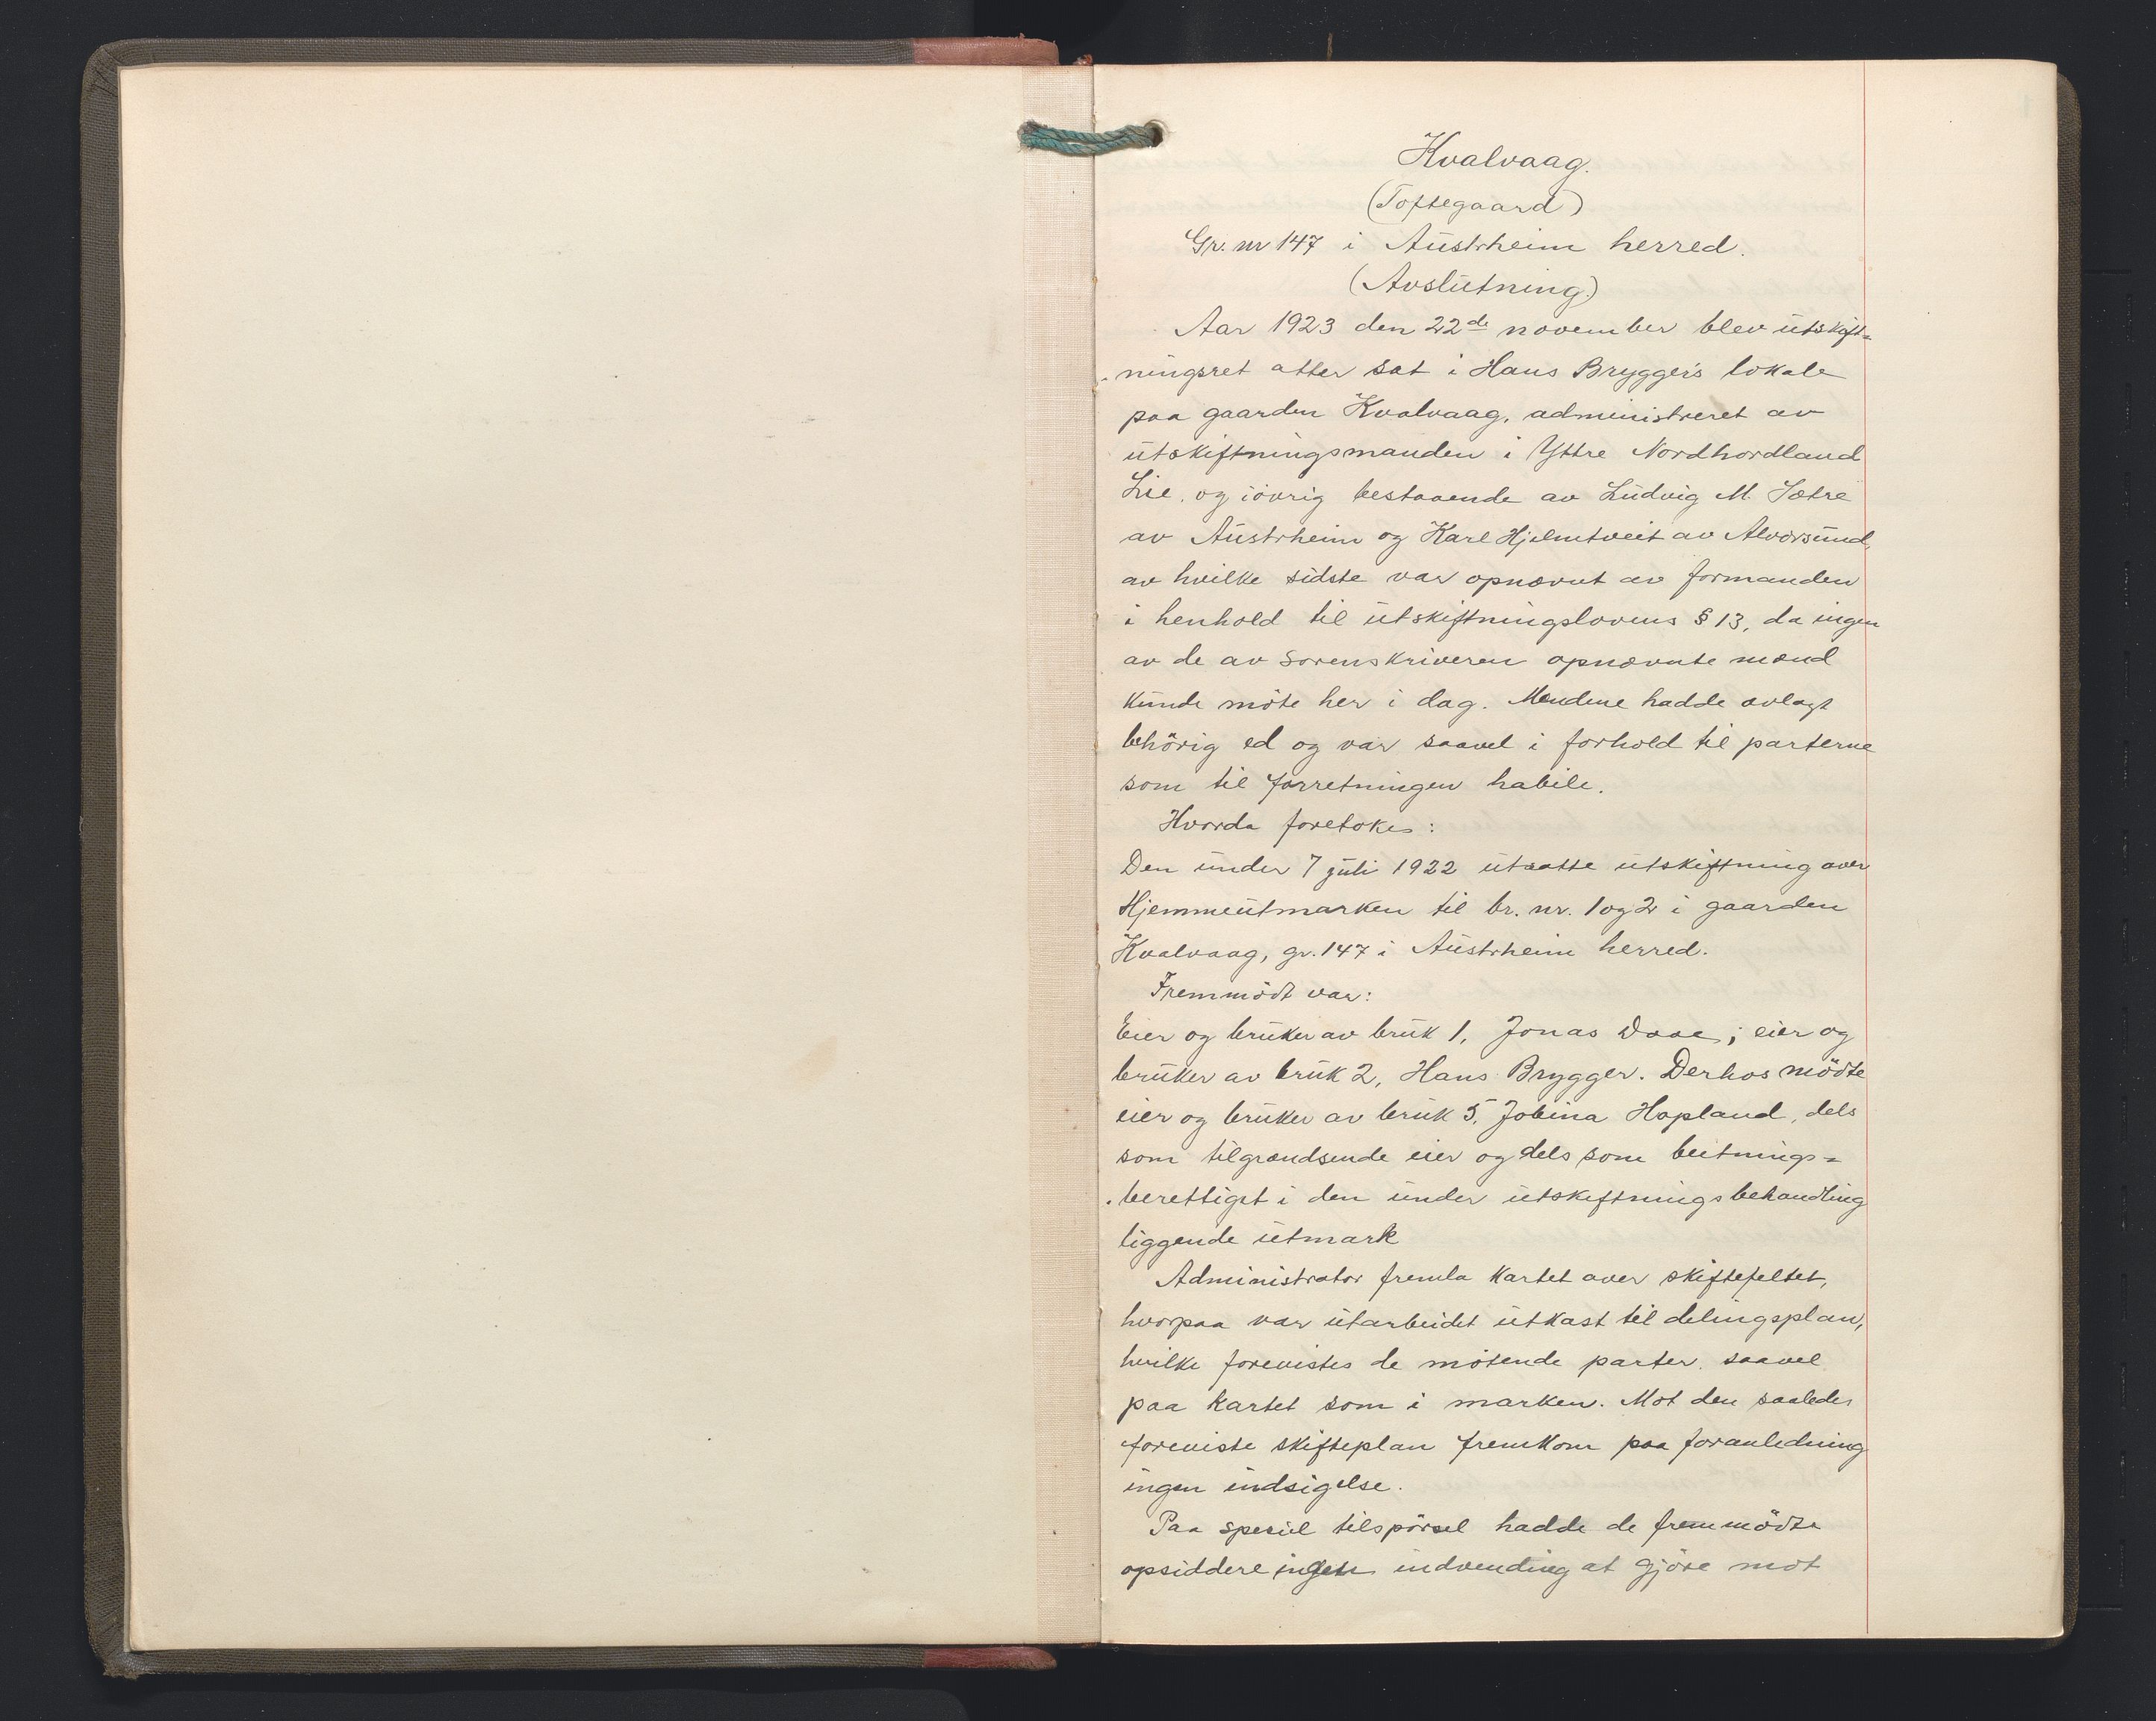 Kvalvaag.
(Toftegaard)
Gr. nr 147 i Austrheim herred.
(Avslutning.)
Aar 1923 den 22de november blev utskift=
ningsret atter sat i Hans Brygger's lokale
paa gaarden Kvalvaag, administreret av
utskiftningsmanden i Yttre Nordhordland
Lie, og iövrig bestaaende av Ludvig M. Sætre
av Austrheim og Karl Hjelmtveit av Alversund,
av hvilke sidste var opnævnt av formanden
i henhold til utskiftningslovens § 13, da ingen
av de av sorenskriveren opnævnte mænd
kunde möte her i dag. Mændene hadde avlagt
behörig ed og var saavel i forhold til parterne
som til forretningen habile.
Hvorda foretokes:
Den under 7 juli 1922 utsatte utskiftning over
Hjemmeutmarken til br. nr. 1 og 2 i gaarden
Kvalvaag, gr. 147 i Austrheim herred.
Fremmödt var:
Eier og bruker av bruk 1, Jonas Daae; eier og
bruker av bruk 2, Hans Brygger. Derhos mödte
eier og bruker av bruk 5, Jobina Hopland, dels
som tilgrændsende eier og dels som beitnings=
berettiget i den under utskiftningsbehandling
liggende utmark
Administrator fremla kartet over skiftefeltet,
hvorpaa var utarbeidet utkast til delingsplan,
hvilke forevistes de mötende parter saavel
paa kartet som i marken. Mot den saaledes
foreviste skifteplan fremkom paa foranledning
ingen indsigelse.
Paa spesiel tilspörsel hadde de fremmödte
opsiddere ingen indvending at gjöre mot